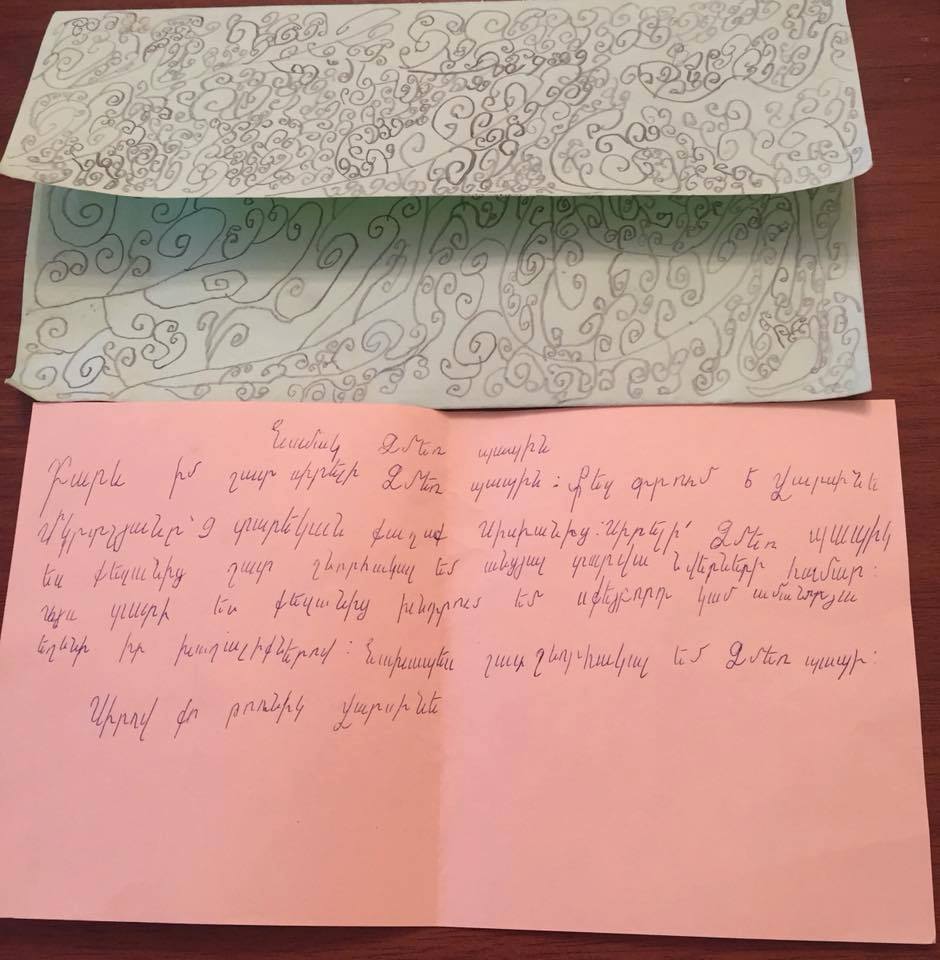 Նամակ Ձմեռ պապին
Բարև իմ շատ սիրելի Ձմեռ պապին: Քեզ գրում է Չարսինեն
Մկրտչյանը՝ 9 տարեկան քաղաք Սիսիանից: Սիրելի՛ Ձմեռ պապիկ
ես քեզանից շատ շնորհակալ եմ անցյալ տարվա նվերների համար:
Այս տարի ես քեզանից խնդրում եմ կամ ամանորյա
եղևնի իր խաղալիքներով: Նախապես շատ շնորհակալ եմ Ձմեռ պապի:
Սիրով քո թոռնիկ